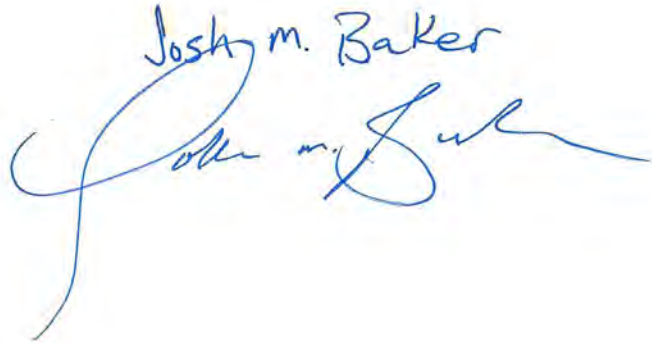 Josh M. Baker
John m. Bak